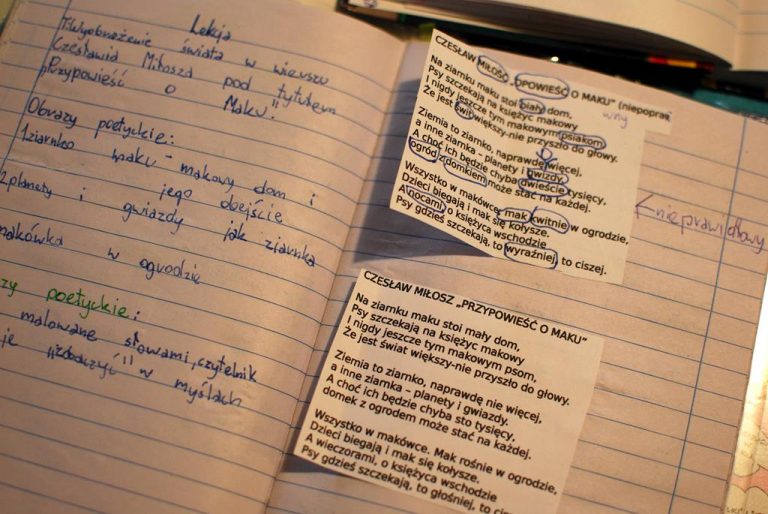 Lekcja
T: Wyobrażenie świata w wierszu
Czesława Miłosza pod tytułem
"Przypowieść o Maku."
Obrazy poetyckie:
1. ziarnko maku - makowy dom i
jego obejście
2. planety i gwiazdy jak ziarnka
makówka w ogrodzie
zy poetyckie:
malowane słowami, czytelnik
je "zobaczyć" w myślach
CZESŁAW MIŁOŚĆ „OPOWIEŚĆ O MAKU” (niepopraw
wny
Na ziarnku maku stoi biały dom,
Psy szczekają na księżyc makowy
I nigdy jeszcze tym makowym psiakom
Że jest świt większy-nie przyszło do głowy.
Ziemia to ziarnko, naprawdę więcej,
a inne ziarnka - planety i gwizdy.
A choć ich będzie chyba dwieście tysięcy,
ogród z domkiem może stać na każdej.
Wszystko w makówce, mak kwitnie w ogrodzie,
Dzieci biegają i mak się kołysze.
A nocami, o księżyca wschodzie
Psy gdzieś szczekają, to wyraźniej, to ciszej.
nieprawidłowy
CZESŁAW MIŁOSZ „PRZYPOWIEŚĆ O MAKU”
Na ziarnku maku stoi mały dom,
Psy szczekają na księżyc makowy
I nigdy jeszcze tym makowym psom,
Że jest świat większy-nie przyszło do głowy.
Ziemia to ziarnko, naprawdę nie więcej,
a inne ziarnka - planety i gwiazdy.
A choć ich będzie chyba sto tysięcy,
domek z ogrodem może stać na każdej.
Wszystko w makówce. Mak rośnie w ogrodzie,
Dzieci biegają i mak się kołysze.
A wieczorami, o księżyca wschodzie
Psy gdzieś szczekają, to głośniej, to cis